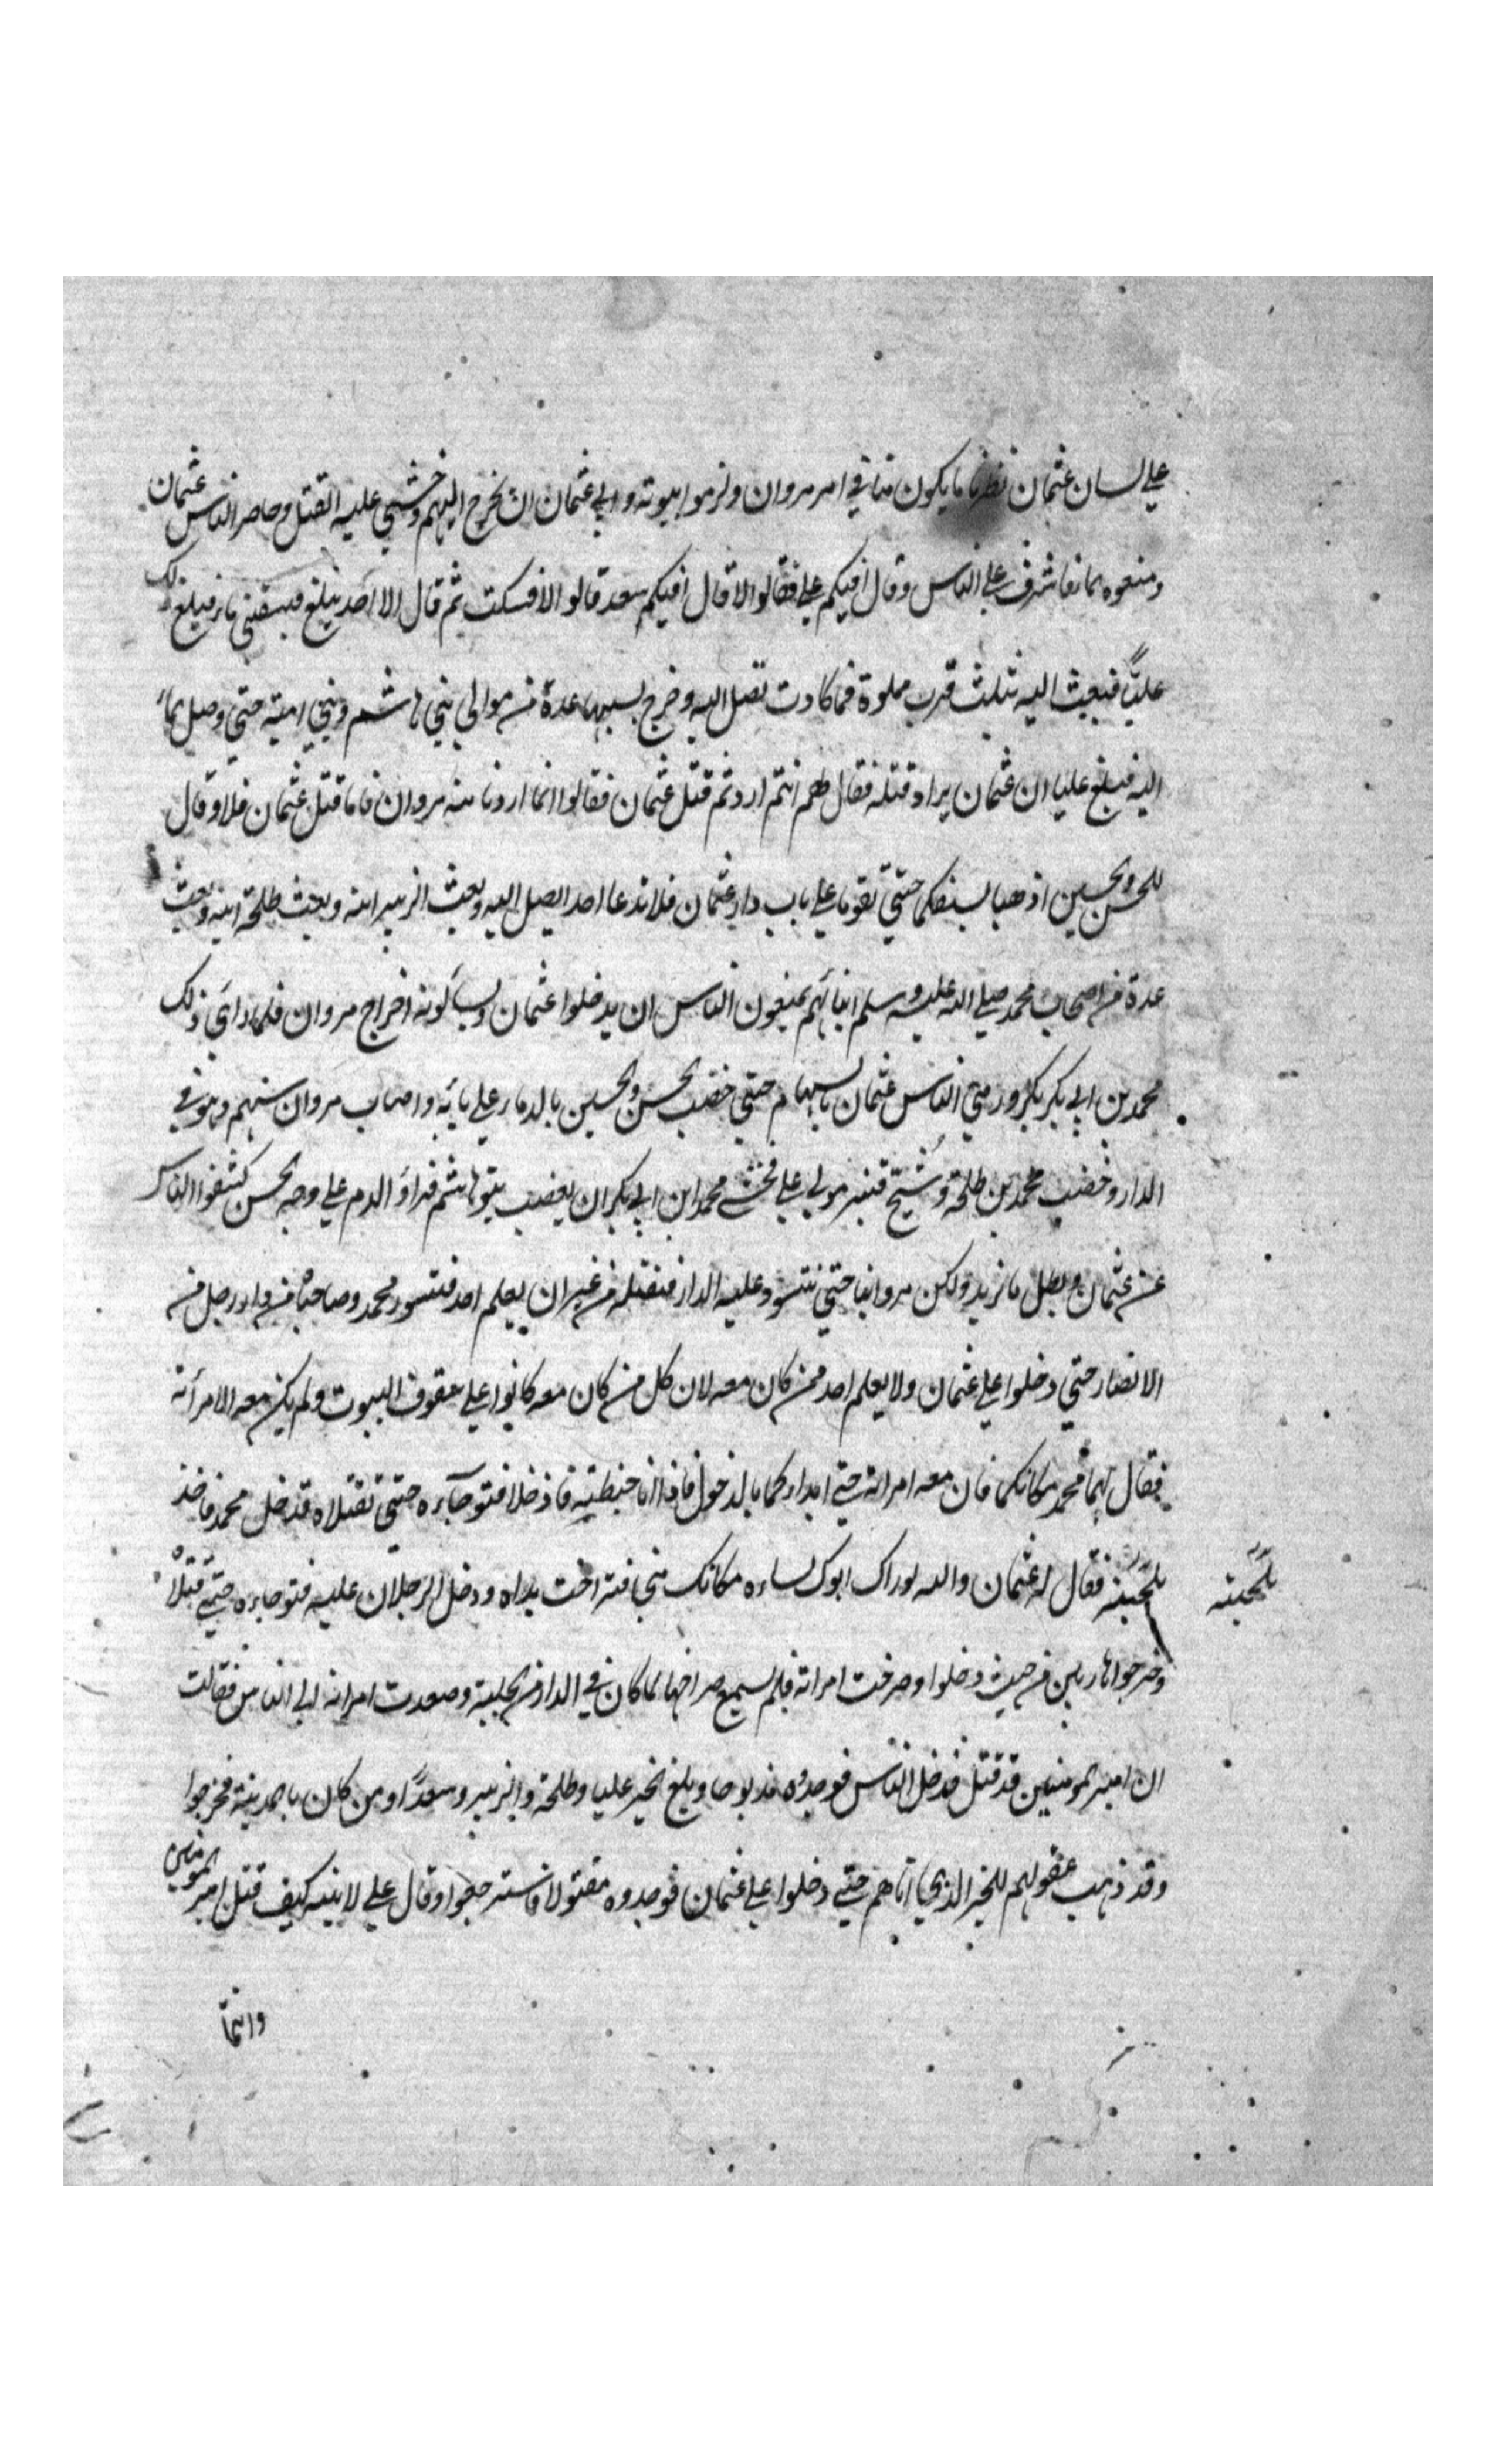 علي لسان عثمان نظرنا ما يكون منا في امر مروان ولزموا بيوته وابي عثمان ان يخرج اليهم وخشي عليه القتل وحاصر الناس عثمان
ومنعوه الما فاشرف علي الناس وقال افيكم علي فقالوا لا قال افيكم سعد قالو الا فسكت ثم قال الا احد يبلغ فيسقني ما فبلغ ذلك
عليًّا فبعث اليه بثلث قرب مملوة فما كادت تصل اليه وخرج بسببها عدة من موالي بني هاشم وبني امية حتي وصل الماء
اليه فبلغ عليا ان عثمان يراد قتله فقال لهم انتم اردتم قتل عثمان فقالوا انما اردنا منه مروان فاما قتل عثمان فلا وقال
للحسن والحسين اذهبا بسيفكما حتي تقوما علي باب دار عثمان فلا تدعا احدا يصل اليه وبعث الزبير ابنه وبعث طلحة ابنه وبعث
عدة من اصحاب محمد صلي الله عليه وسلم ابنائهم يمنعون الناس ان يدخلوا عثمان ويسألونه اخراج مروان فلما راي ذلك
محمد بن ابي بكر ورمي الناس عثمان بالسهام حتي خضب الحسن والحسين بالدماء علي بابه واصاب مروان سهم وهو في
الدار وخضب محمد بن طلحة وشج قنبر مولي علي فخشي محمد ابن ابي بكر ان يغضب بنو هاشم فراو الدم علي وجه الحسن كشفوا الناس
عن عثمان وبطل ما نريد ولكن مروا بنا حتي نتسور عليه الدار فنقتله من غير ان يعلم احد فتسور محمد وصاحباه من دار رجل من
الانصار حتي دخلوا علي عثمان ولا يعلم احد ممن كان معه لان كل من كان معه كانوا علي سقوف البيوت ولم يكن معه الا امرأته
فقال لهما محمد مكانكما فان معه امراته حتي ابداوكما بالدخول فاذا انا خبطته فادخلا فتوجاءه حتي تقتلاه فدخل محمد فاخذ
بلحيته فقال له عثمان والله لو راك ابوك لساءه مكانك مني فتراخت يداه ودخل الرجلان عليه فتوجاءه حتي قتلاه
بلحيته
وخرجوا هاربين من حيث دخلوا وصرخت امراته فلم يسمع صراخها لما كان في الدار من الجلبة وصعدت امراته الي الناس فقالت
ان امير المومنين قد قتل فدخل الناس فوجدوه مذبوحا وبلغ الخبر عليا وطلحة والزبير وسعدًا ومن كان بالمدينة فخرجوا
وقد ذهبت عقولهم للخبر الذي اتاهم حتي دخلوا علي عثمان فوجدوه مقتولا فاسترجعوا وقال علي لابنيه كيف قتل امير المومنين
وانتما